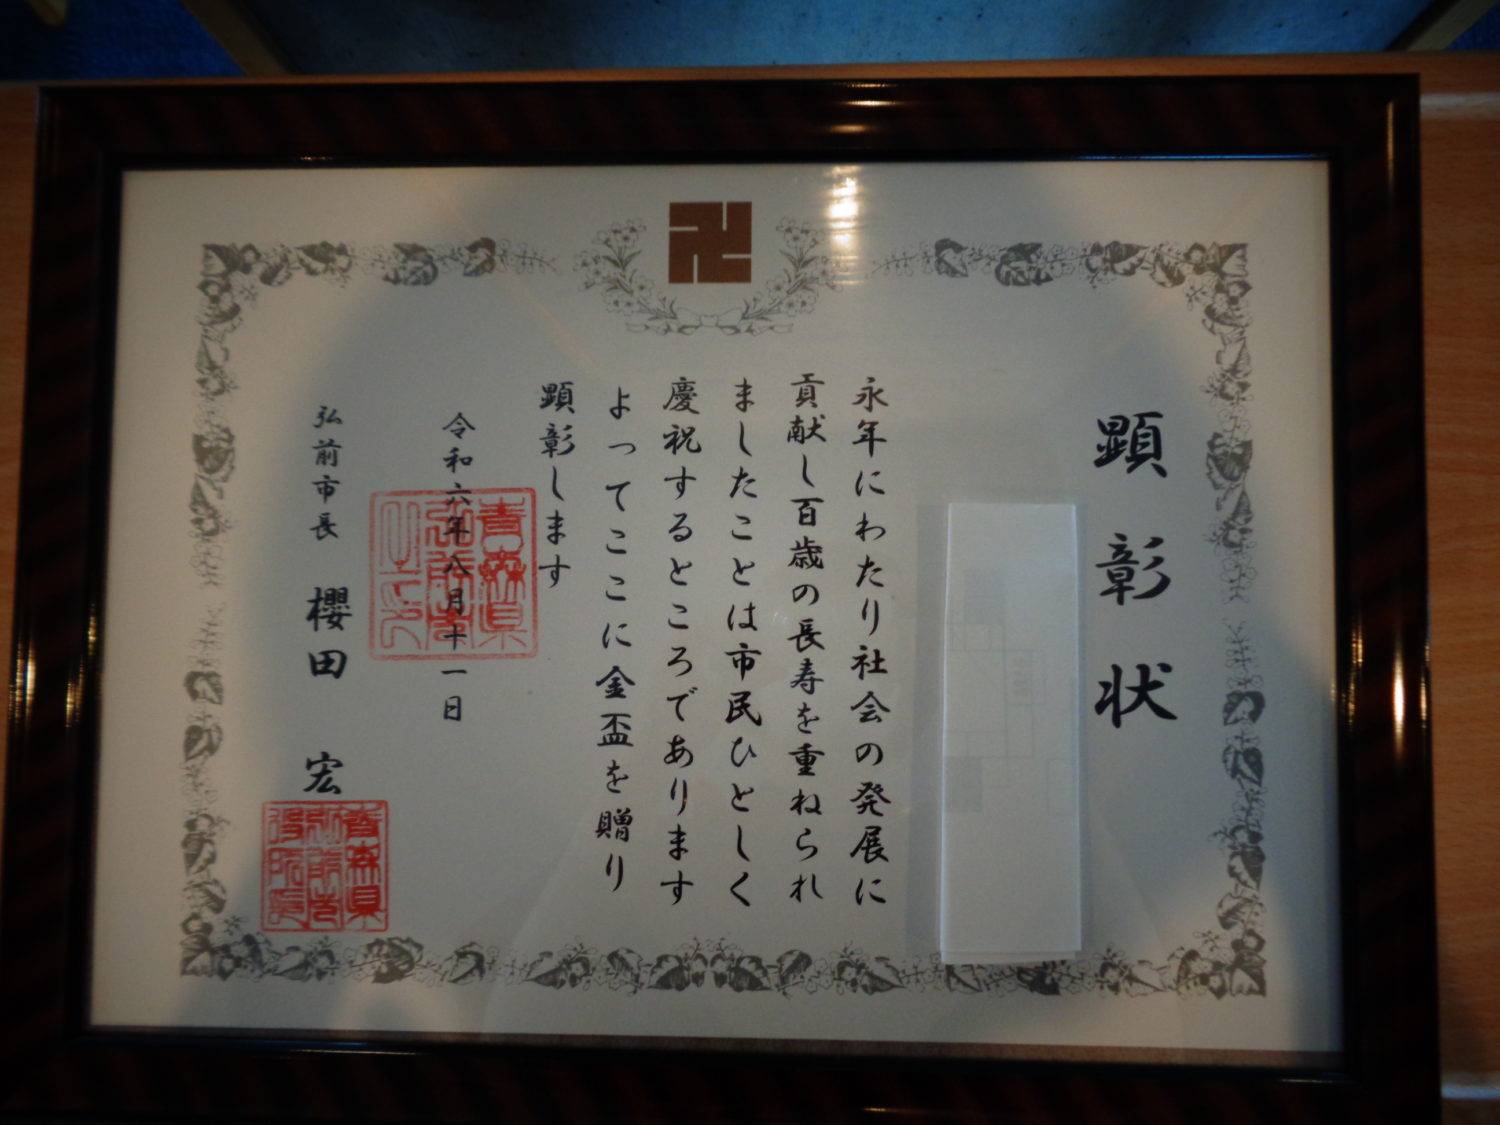 顕彰状
永年にわたり社会の発展に
貢献し百歳の長寿を重ねられ
ましたことは市民ひとしく
慶祝するところであります
よってここに金盃を贈り
顕彰します
令和六年八月十一日
弘前市長 櫻田 宏
青森県
弘前市
之印
青森県
弘前市
役所長